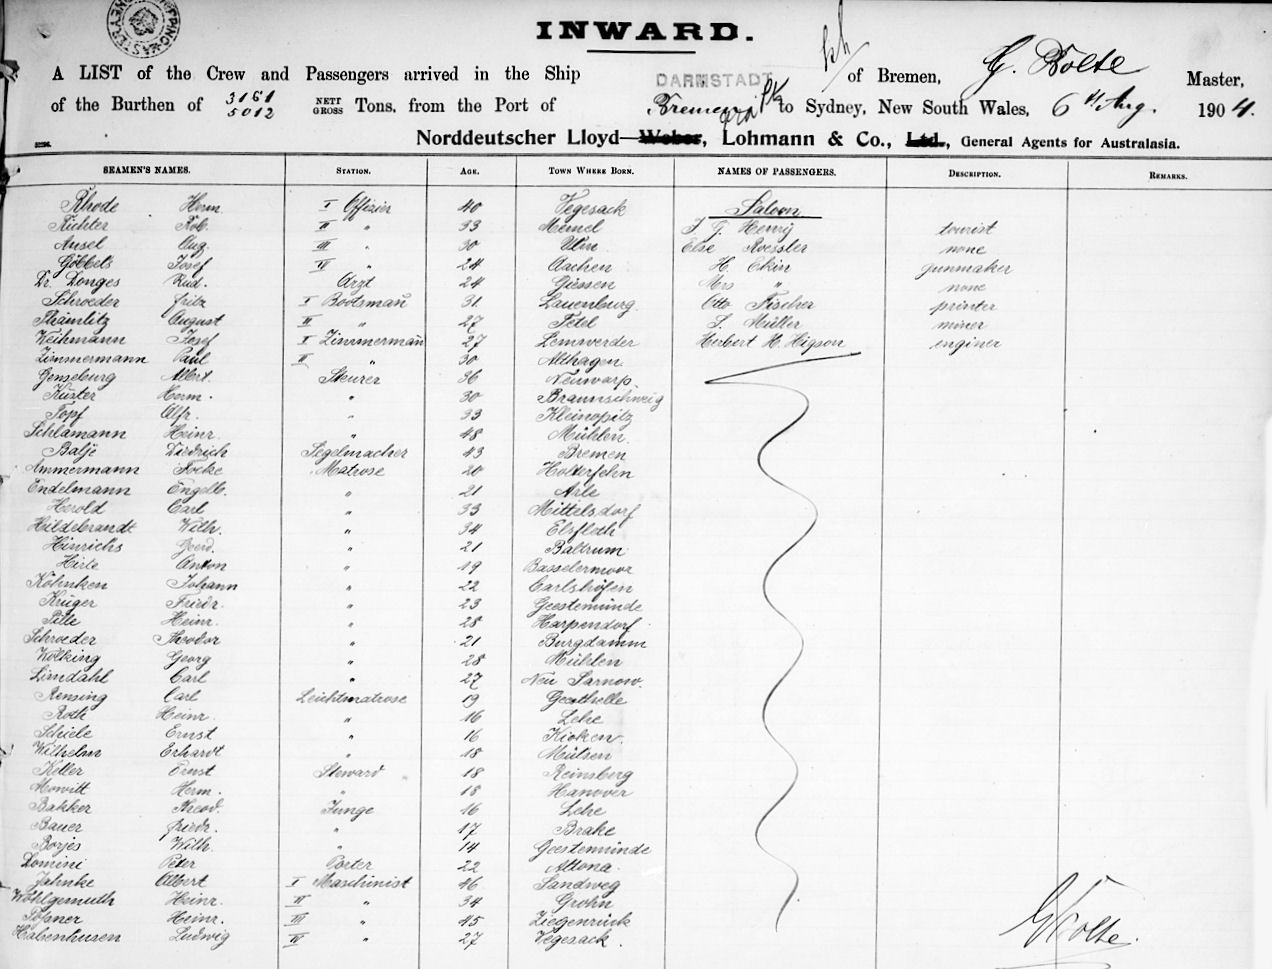 INWARD.
A LIST of the Crew and Passengers arrived in the Ship DARMSTADT of Bremen, G. Bolte Master,
of the Burthen of 3161 NETT 5012 GROSS Tons, from the Port of Bremen to Sydney, New South Wales, 6th Aug. 1904.
Norddeutscher Lloyd—Weber, Lohmann & Co., Ltd., General Agents for Australasia.
SEAMEN'S NAMES. STATION. AGE. TOWN WHERE BORN. NAMES OF PASSENGERS. DESCRIPTION. REMARKS.
Rhode Herm. I Offizier 40 Vegesack Saloon
Richter Rob. II " 33 Memel J. G. Henry tourist
Ansel Aug. III " 30 Ulm Else Roessler none
Göbbels Josef IV " 24 Aachen H. Ekin gunmaker
Dr. Donges Rud. Arzt 24 Giessen Mrs " none
Schroeder Fritz I Bootsmañ 31 Lauenburg Otto Fischer printer
Thämlitz August II " 27 Tetel S. Müller miner
Weihmann Josef I Zimmermañ 27 Lemwerder Herbert H. Higson enginer
Zimmermann Paul II " 30 Althagen
Genseburg Albert. Steurer 36 Neuwarp
Küster Herm. " 30 Braunschweig
Topf Alfr. " 33 Kleinopitz
Schlamann Heinr. " 48 Mühlen.
Balje Diedrich Segelmacher 43 Bremen
Ammermann Focke Matrose 20 Holterfehn
Endelmann Engelb. " 21 Arle
Herold Carl " 33 Mittelsdorf
Hildebrandt Wilh. " 34 Elsfleth
Hinrichs Gerd. " 21 Baltrum
Hirle Anton " 19 Basselermoor
Köhnken Johann " 22 Carlshöfen
Krüger Friedr. " 23 Geestemünde
Pille Heinr. " 28 Harpendorf
Schroeder Theodor " 21 Burgdamm
Wölking Georg " 28 Mühlen
Lindahl Carl " 27 Neu Sarnow.
Rensing Carl Leichtmatrose 19 Geesthelle
Roth Heinr. " 16 Lehe
Schiele Ernst " 16
Wilhelm Erhardt " 18 Mülsen
Keller Ernst Steward 18 Reinsberg
Mowitt Herm. " 18 Hanover
Bakker Theod. Junge 16 Lehe
Bauer Friedr. " 17 Brake
Borjes Wilh. " 14 Geestemünde
Domini Peter Porter 22 Altona.
Jahnke Albert I Maschinist 46 Sandweg
Wohlgemuth Heinr. II " 34 Grohn
Heinr. III " 45 Ziegenrück
Habenhusen Ludwig IV " 27 Vegesack.
G Bolte.